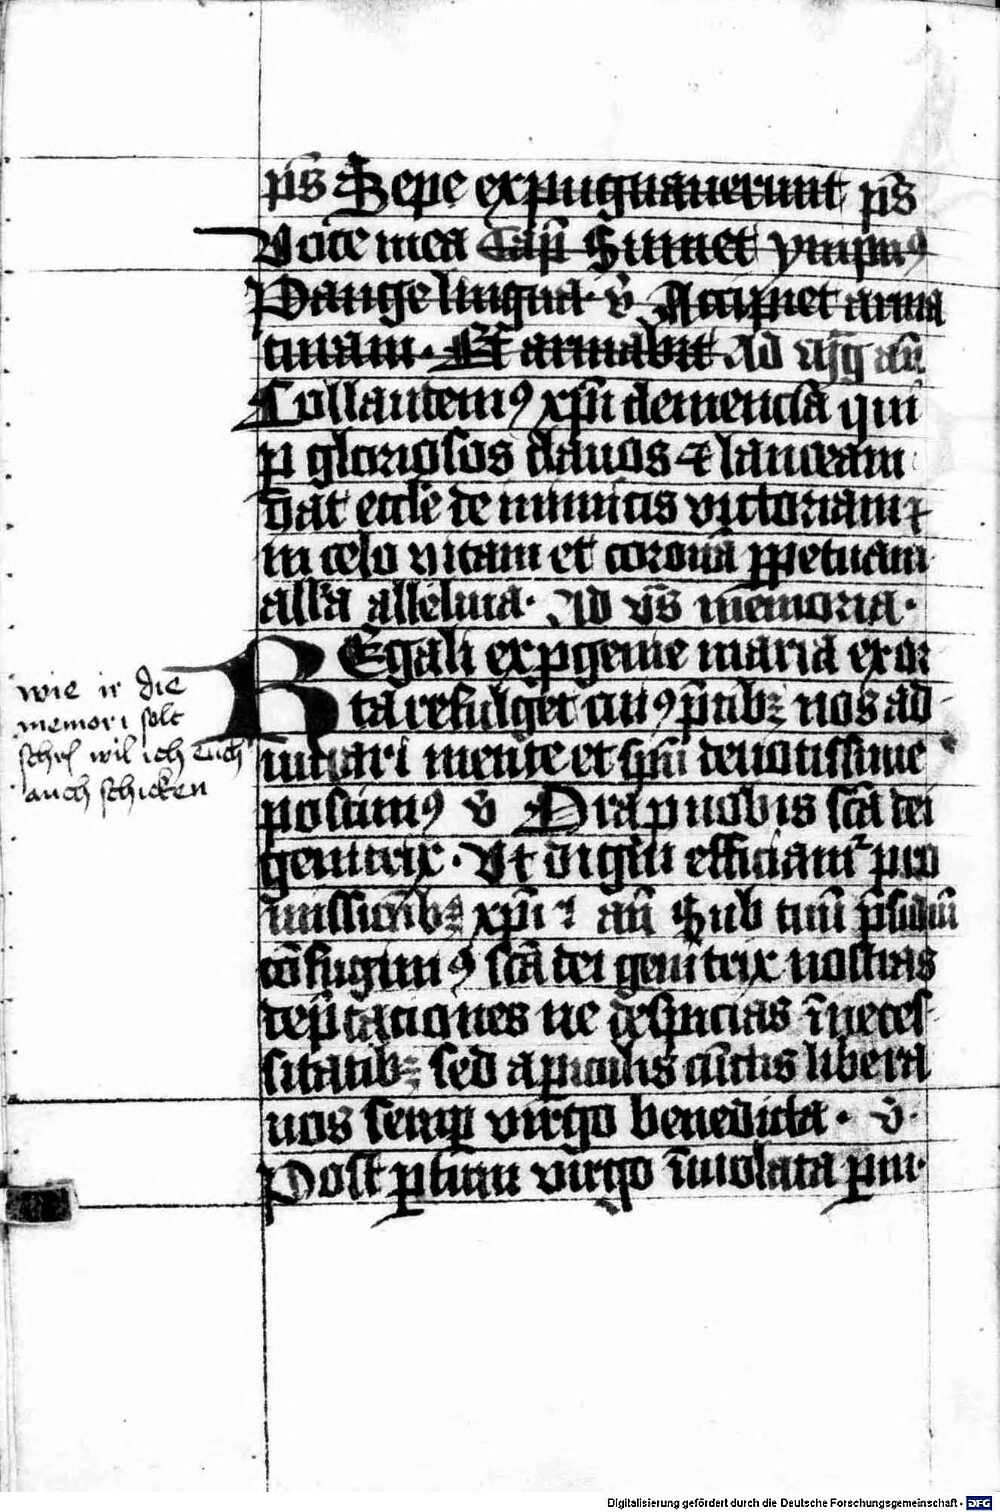 ps̄ Sepe expugnauerunt ps̄
Uoce mea Cap̄ Sumet ympnꝰ
Pange lingua · v̄ Accipiet arma
turam · Et armabit Ad viḡ an̄
Collaudemꝰ xp̄m clemencia qui
ꝑ gloriosos clauos ⁊ lanceam
dat eccl̄e de inimicis victoriam ⁊
in celo vitam et coronā ꝑpetuam
all̄a alleluia · Ad vs̄ memoria ·
REgali ex ꝓgenie maria exor
ta refulget cuiꝰ p̄cibꝫ nos ad
iuuari mente et sp̄u deuotissime
poscimꝰ v̄ Ora ꝓ nobis sc̄a dei
genitrix · Vt digni efficiam̄ pro
missionibꝫ xp̄i an̄ Sub tuū p̄sidiū
cōfugimꝰ sc̄a dei genitrix nostras
dep̄caciones ne despicias ī neces
sitatibꝫ sed a ꝑiculis cūctis libera
nos semꝑ virgo benedicta · v̄
Post ꝑtum virgo īuiolata ꝑm
wie ir die
memori solt
wil ich euch
auch schicken
Digitalisierung gefördert durch die Deutsche Forschungsgemeinschaft - DFG